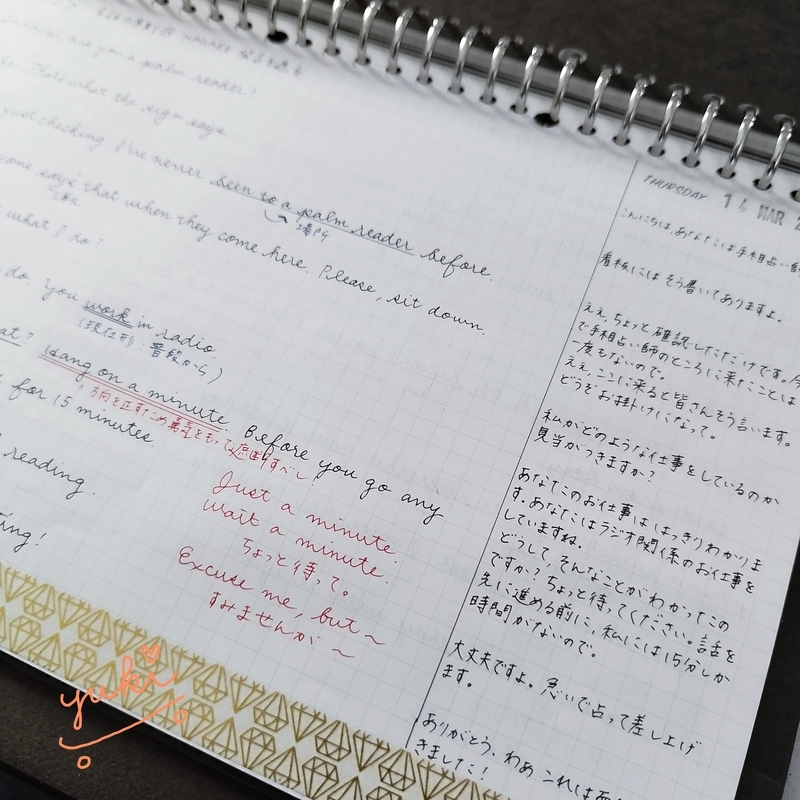 are you a palm reader?
that's what the sign says.
just checking. I've never been to a palm reader before.
場所
says that when they come here. Please, sit down.
what I do?
do. You work in radio.
(現在形:普段から)
at? Hang on a minute. Before you go any
方向を正すため勇気をもって
for 15 minutes.
reading.
Just a minute.
Wait a minute.
ちょっと待って。
Excuse me, but ~
すみませんが ~
THURSDAY 14 MAR
こんにちは、あなたは手相占い師
看板にはそう書いてありますよ。
ええ、ちょっと確認しただけです。
で手相占い師のところに来たことは
一度もないので。
ええ、ここに来ると皆さんそう言います。
どうぞお掛けになって。
私がどのような仕事をしているのか
見当がつきますか?
あなたのお仕事ははっきりわかりま
す。あなたはラジオ関係のお仕事を
していますね。
どうして、そんなことがわかったの
ですか?ちょっと待ってください。話を
先に進める前に、私には15分しか
時間がないので。
大丈夫ですよ。急いで占って差し上げ
ます。
ありがとう、わあ これは
きました!
yuki